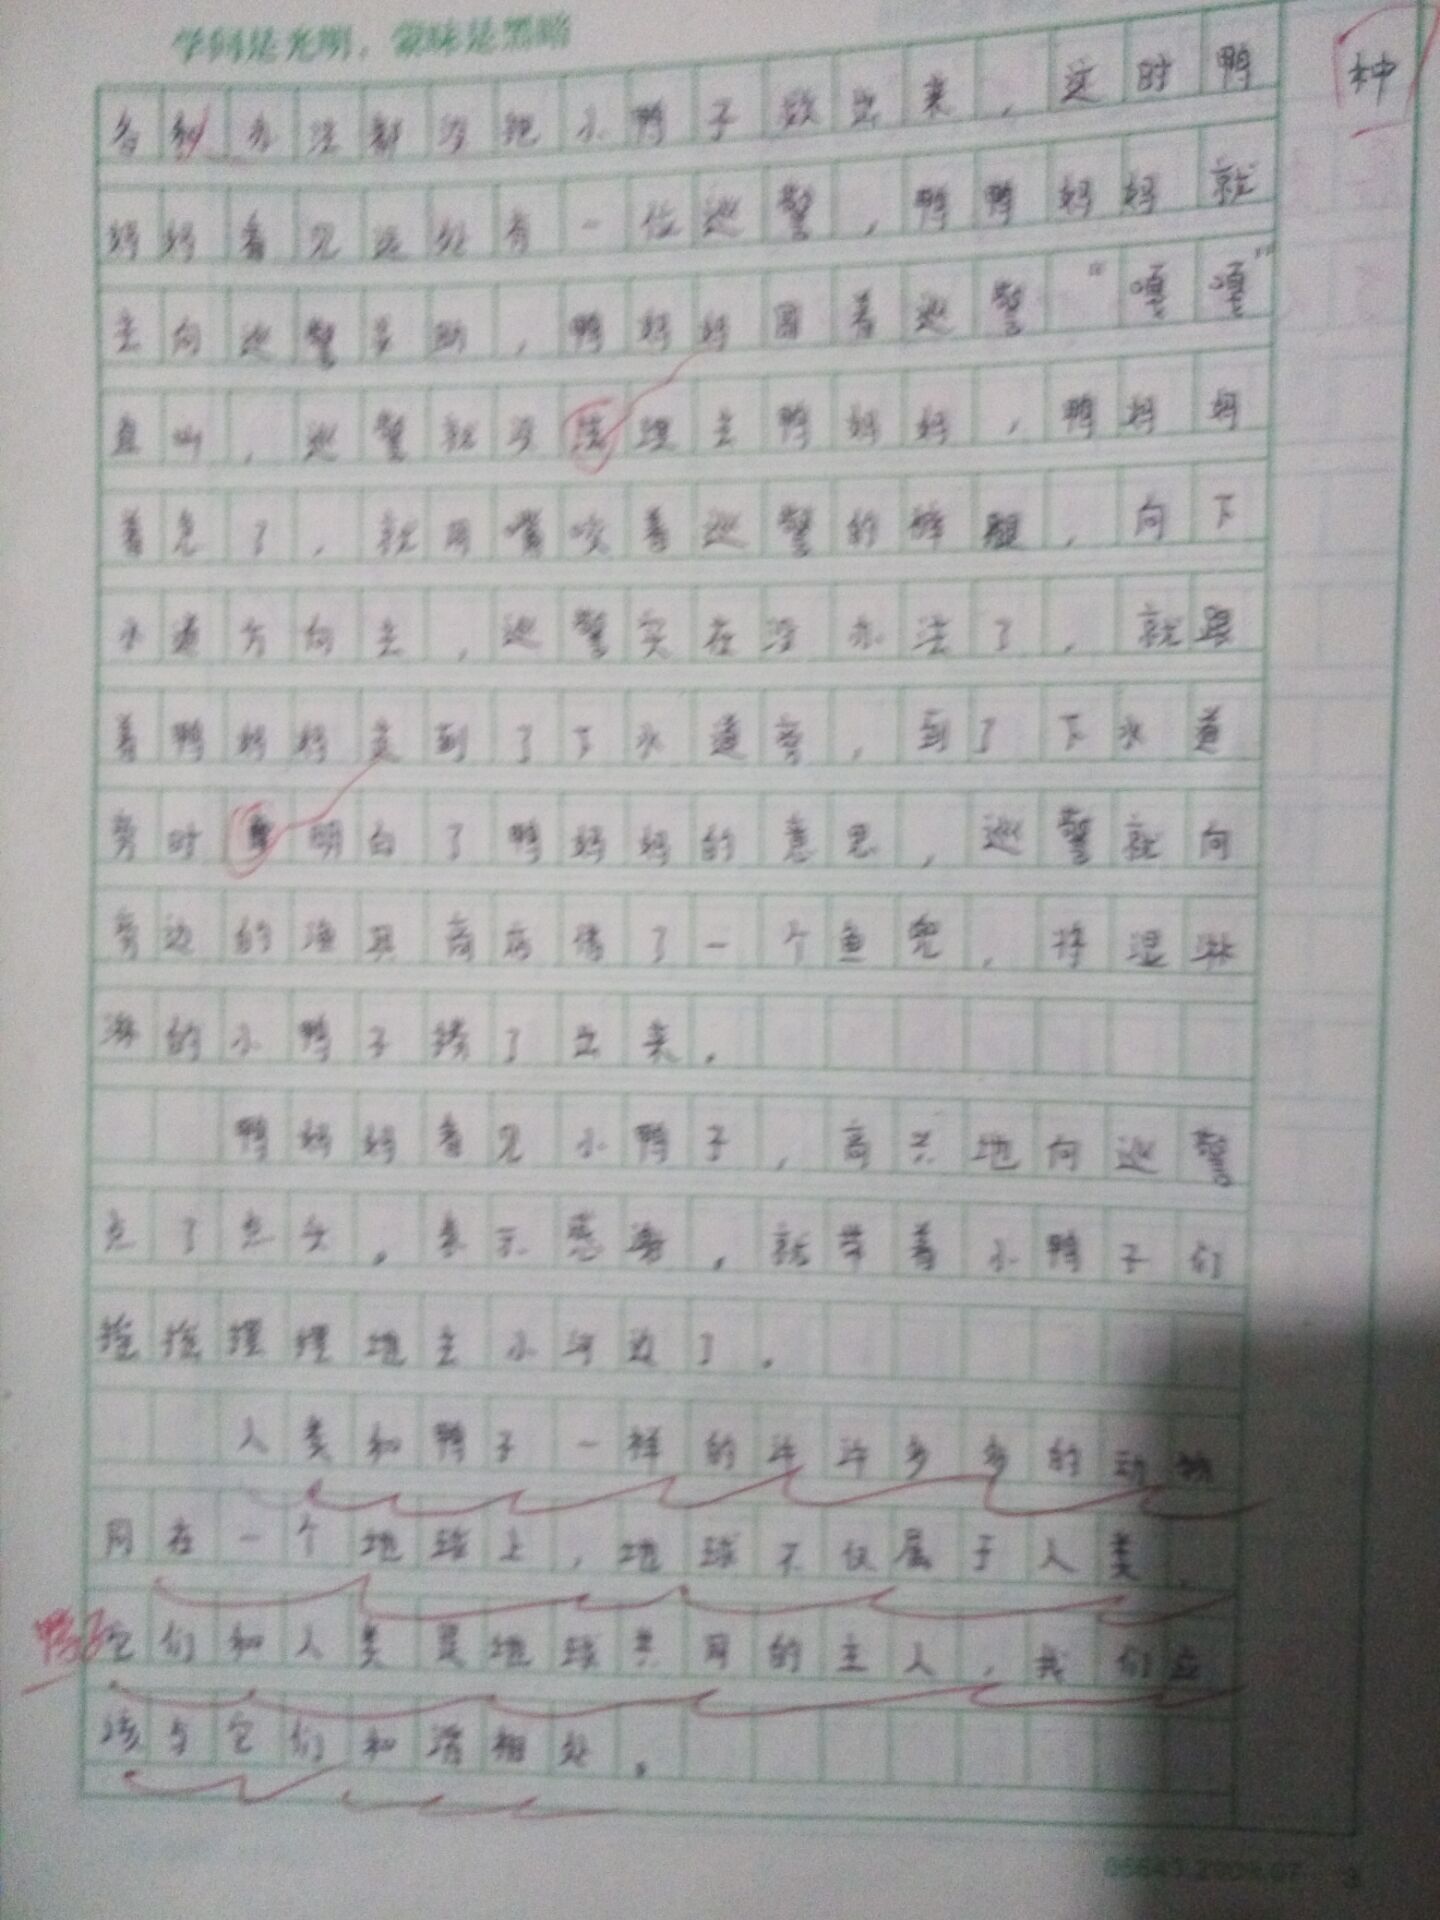 学问是光明，蒙昧是黑暗
种
各种办法都没把小鸭子救出来，这时鸭
妈妈看见远处有一位巡警，鸭鸭妈妈就
去向巡警求助，鸭妈妈围着巡警“嘎嘎”
直叫，巡警就没理主鸭妈妈，鸭妈妈
看见了，就用嘴咬着巡警的裤腿，向下
水道方向走，巡警实在没办法了，就跟
着鸭妈妈走到了下水道旁，到了下水道
旁时明白了鸭妈妈的意思，巡警就向
旁边的渔具商店借了一个鱼兜，将湿淋
淋的小鸭子捞了出来。
鸭妈妈看见小鸭子，高兴地向巡警
点了点头，表示感谢，就带着小鸭子们
摇摇摆摆地去小河边了。
人类和鸭子一样的许许多多的动物
同在一个地球上，地球不仅属于人类，
鸭子
它们和人类是地球共同的主人，我们应
该与它们和谐相处。